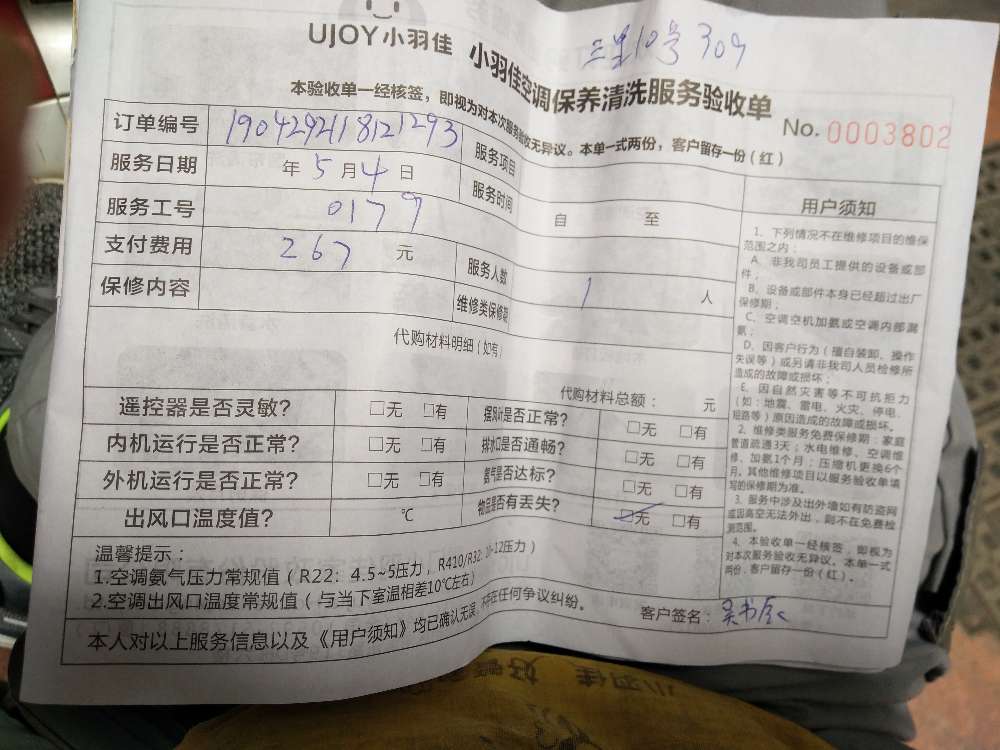 UJOY小羽佳
三里10号 309
小羽佳空调保养清洗服务验收单
本验收单一经核签，即视为对本次服务验收无异议。本单一式两份，客户留存一份（红）
No. 0003802
订单编号 190429218121293 服务项目
服务日期 年 5 月 4 日 服务时间 自 至
服务工号 0179
支付费用 267 元 服务人数 1 人
保修内容 维修类保修期
代购材料明细（如有）
代购材料总额： 元
遥控器是否灵敏？ □无 □有 摆风叶是否正常？ □无 □有
内机运行是否正常？ □无 □有 排水口是否通畅？ □无 □有
外机运行是否正常？ □无 □有 氨气是否达标？ □无 □有
出风口温度值？ ℃ 物品是否有丢失？ ☑无 □有
用户须知
1、下列情况不在维修项目的维保
范围之内：
A、非我司员工提供的设备或部
件；
B、设备或部件本身已经超过出厂
保修期；
C、空调空机加氨或空调内部漏
氨；
D、因客户行为（擅自装卸、操作
失误等）或另请非我司人员检修所
造成的故障或损坏；
E、因自然灾害等不可抗拒力
（如：地震、雷电、火灾、停电、
短路等）原因造成的故障或损坏。
2、维修类服务免费保修期：家庭
管道疏通3天；水电维修、空调维
修、加氨1个月；压缩机更换6个
月，其他维修项目以服务验收单填
写的保修期为准。
3、服务中涉及出外墙如有防盗网
或因高空无法外出，则不在免费检
测范围。
4、本验收单一经核签，即视为
对本次服务验收无异议。本单一式
两份，客户留存一份（红）。
温馨提示：
1.空调氨气压力常规值（R22：4.5~5压力，R410/R32：10-12压力）
2.空调出风口温度常规值（与当下室温相差10℃左右）
本人对以上服务信息以及《用户须知》均已确认无误，不存在任何争议纠纷。 客户签名：
小羽佳 好